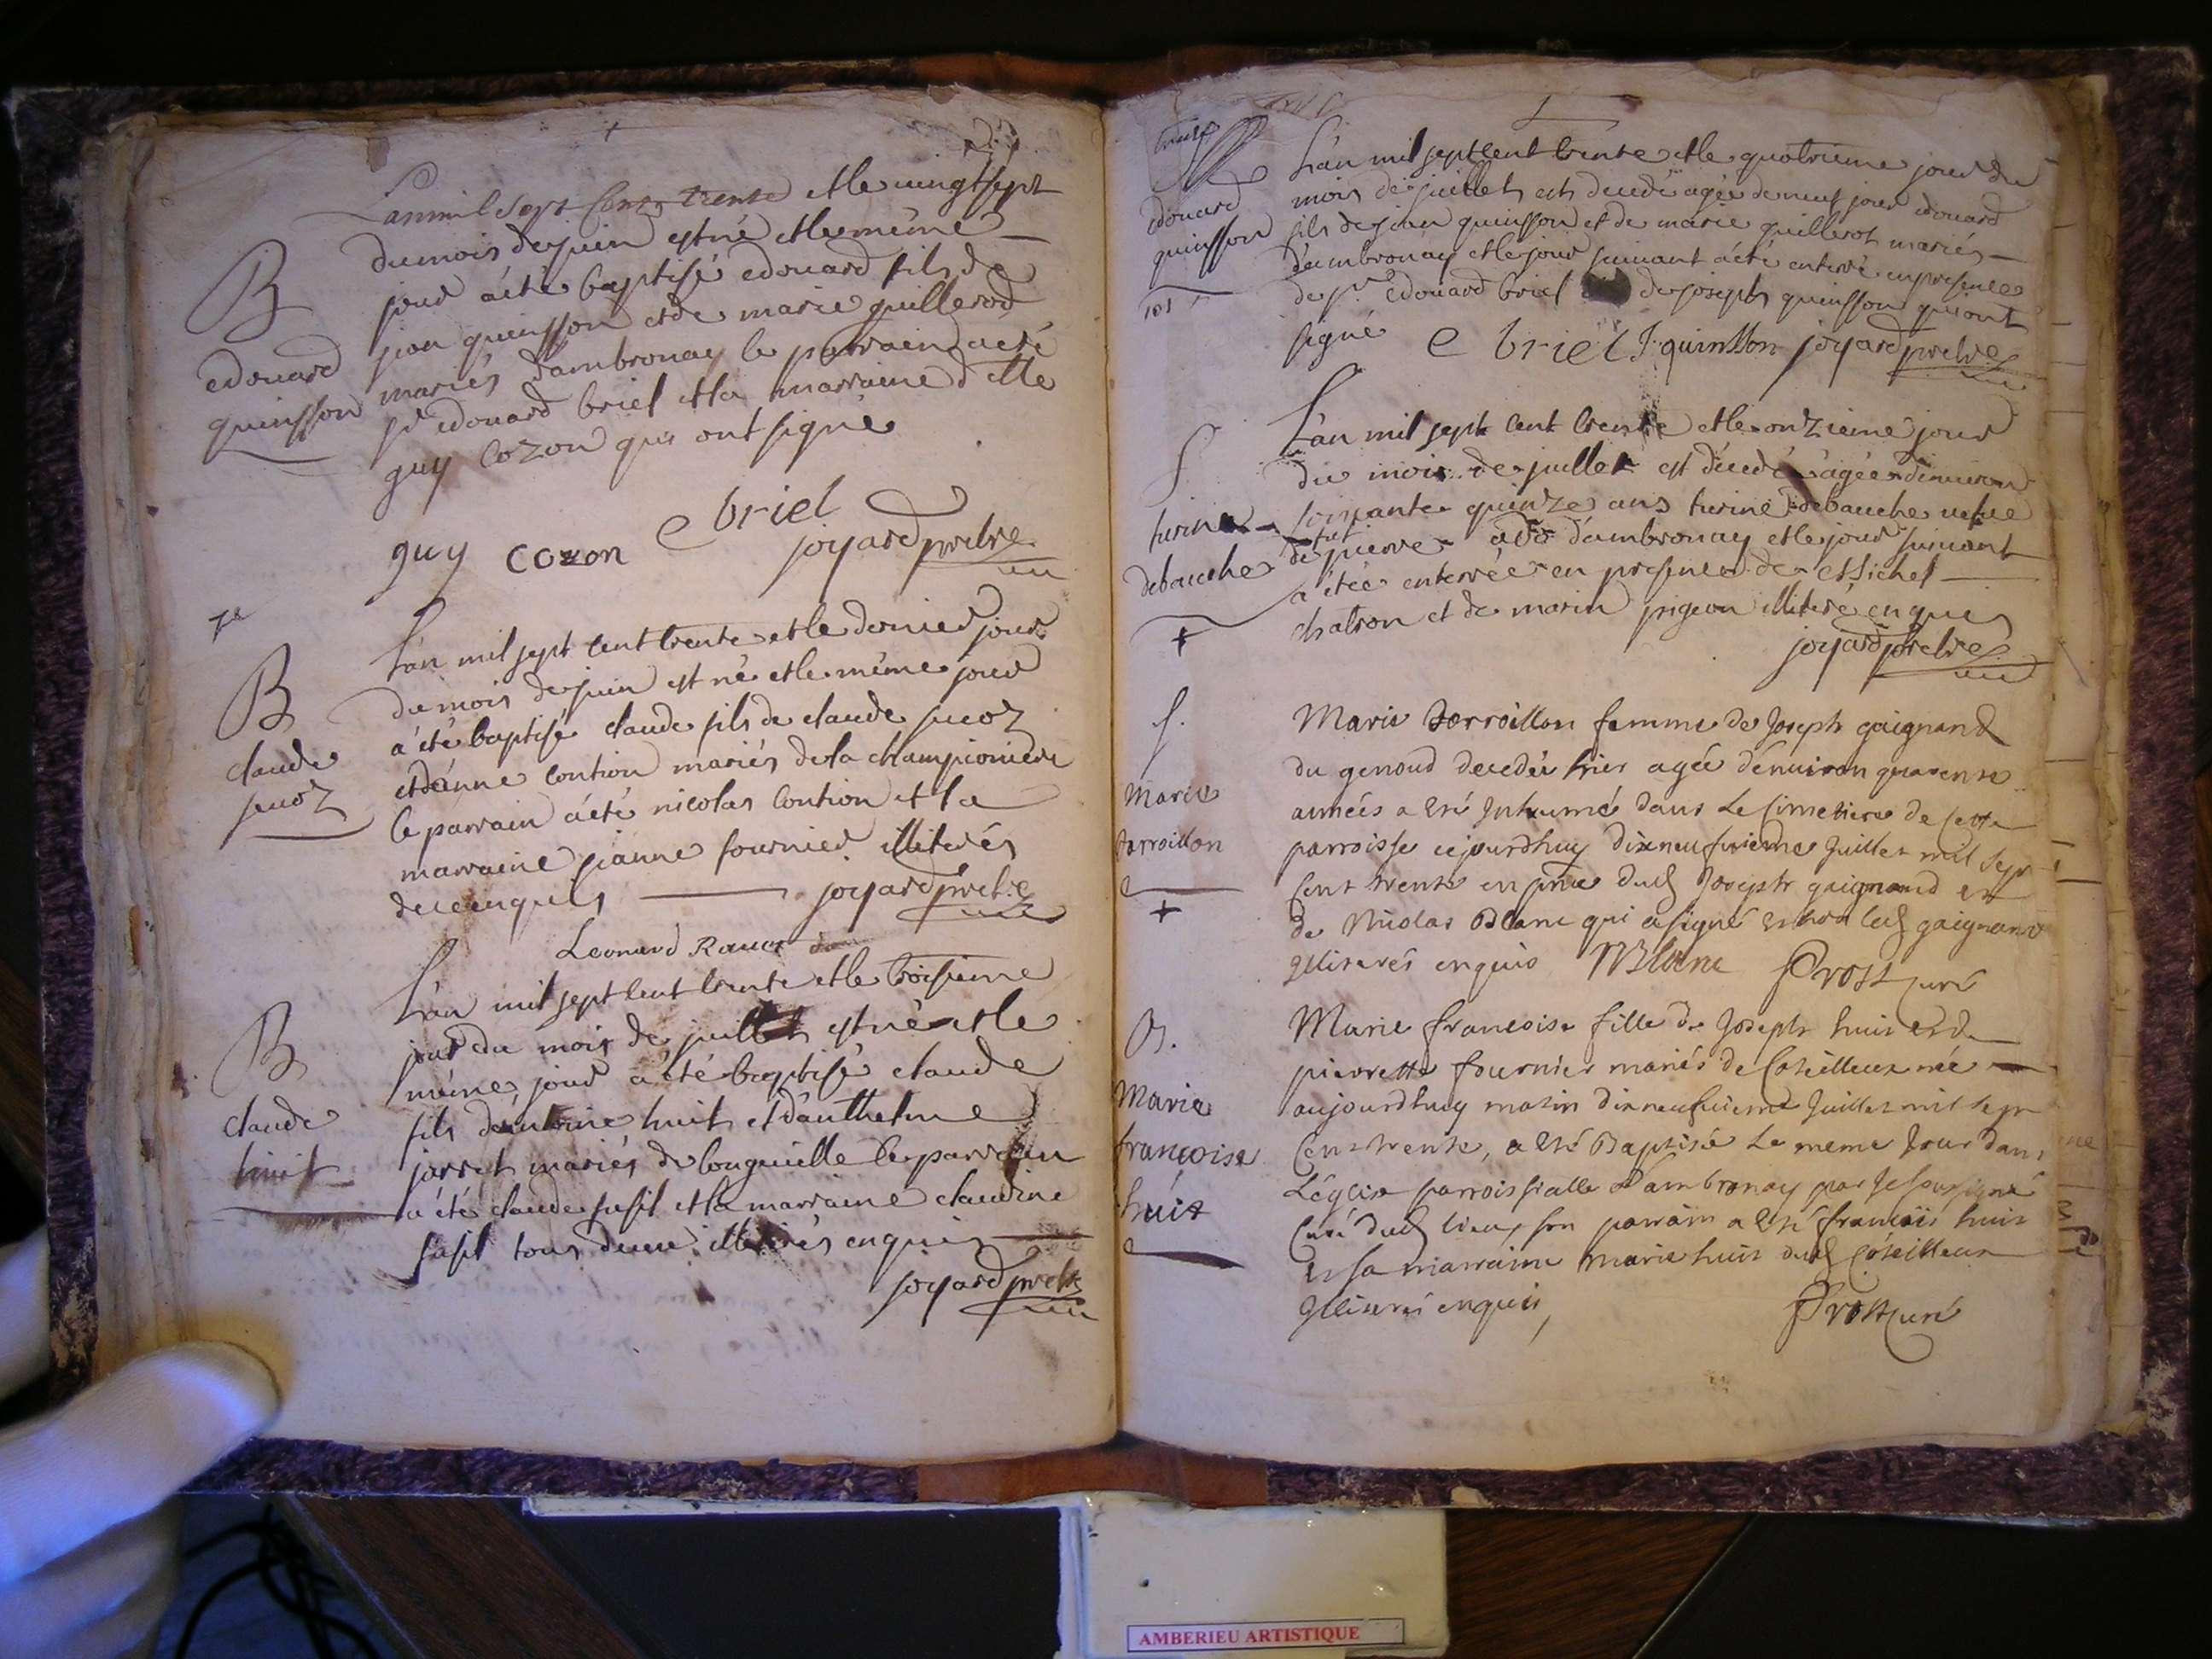 L'an mil sept cents trente et le vingt sept
du mois de juin est né et le même
jour a été baptisé edouard fils de
jean quinsson et de marie guillerod
mariés d'ambronay le parrain a été
sr edouard briel et la marraine dlle
guy cozon qui ont signé
B
edouard
quinsson
e briel
guy cozon joyard prebre
L'an mil sept cent trente et le dernier jour
du mois de juin est né et le même jour
a été baptisé claude fils de claude
et d'anne contion mariés de la championiere
le parrain a été nicolas contion et la
marraine jeanne fournier illiterés
de ce enquis joyard prebre
B
claude
Leonard
L'an mil sept cent trente et le troisieme
jour du mois de juillet est né et le
même jour a été baptisé claude
fils d'antoine huit et d'anthelme
jarret mariés de longueville le parrain
a été claude fusil et la marraine claudine
fusil tous deux illiterés enquis
joyard prebre
B
claude
huit
edouard
quinsson
L'an mil sept cent trente et le quatrieme jour du
mois de juillet est decedé agée de neuf jours edouard
fils de jean quinsson et de marie guillerot mariés
d'ambronay et le jour suivant a été enterré en presence
de sr edouard briel de joseph quinsson qui ont
signé e briel J. quinsson joyard prebre
L'an mil sept cent trente et le onzieme jour
du mois de juillet est decedé agée d'environ
soixante quinze ans turine debauche vefue
de pierre d'ambronay et le jour suivant
a étée enterrée en presence de Michel
chatron et de marin pigeon illiteré enquis
joyard prebre
S
turine
debauche
Marie Torroillon femme de Joseph gaignand
du genoud decedée hier agée d'environ quarente
années a esté Inhumée dans le Cimetiere de Cette
parroisse cejourdhuy dixneufuieme Juillet mil sept
Cent trente en pnce dud Joseph gaignand et
de Nicolas Blanc qui a signé et non led gaignand
Illiterés enquis NBlanc Prost curé
S.
Marie
Torroillon
Marie francoise fille de Joseph huit et de
pierrette fournier mariés de Coteilleux née
aujourdhuy matin dixneufuieme Juillet mil sept
Cent trente, a esté Baptisée le meme Jour dans
L'église parroissialle d'ambronay par Je soussigné
Curé dud lieu, son parrain a esté francois huit
et sa marraine marie huit dud Coteilleux
Illiterés enquis, Prost curé
B.
Marie
françoise
huit
AMBERIEU ARTISTIQUE